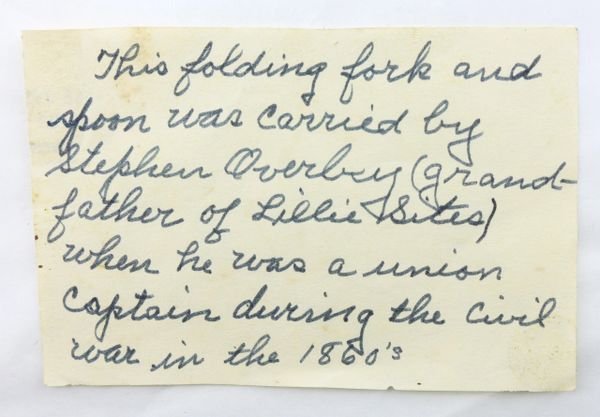 This folding fork and
spoon was carried by
Stephen Overbey (grand-
father of Lillie Sites)
when he was a union
Captain during the Civil
war in the 1860's